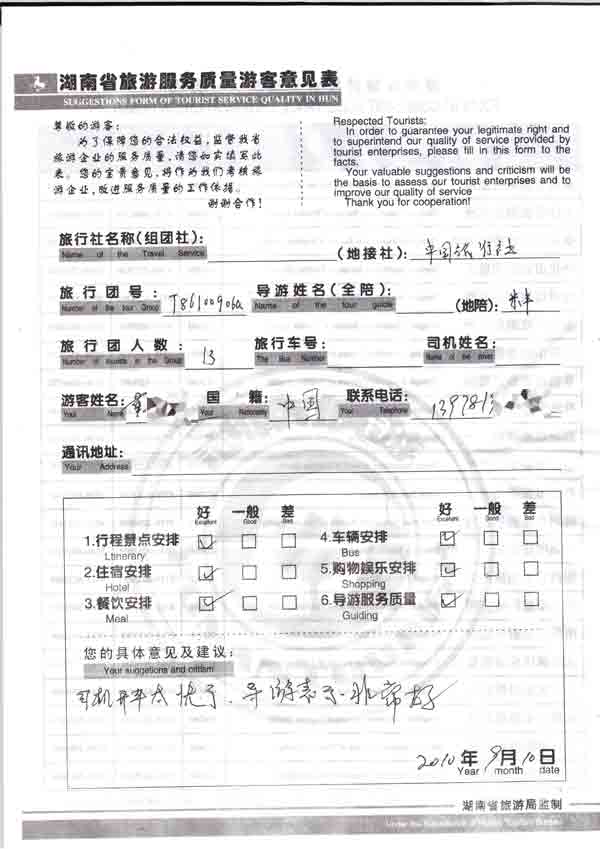 湖南省旅游服务质量游客意见表
SUGGESTIONS FORM OF TOURIST SERVICE QUALITY IN HUN
尊敬的游客:
为了保障您的合法权益,监督我省
旅游企业的服务质量,请您如实填写此
表。您的宝贵意见,将作为我们考核旅
游企业,改进服务质量的工作依据。
谢谢合作!
Respected Tourists:
In order to guarantee your legitimate right and
to superintend our quality of service provided by
tourist enterprises, please fill in this form to the
facts.
Your valuable suggestions and criticism will be
the basis to assess our tourist enterprises and to
improve our quality of service
Thank you for cooperation!
旅行社名称(组团社): (地接社): 中国旅行社
Name of the Travel Service
旅行团号: T86100906a 导游姓名(全陪): (地陪):
Number of the tour Group Name of the tour guide
旅行团人数: 13 旅行车号: 司机姓名:
Number of tourists in the Group The Bus Number Name of the driver
游客姓名: 国籍: 中国 联系电话: 139781
Your Name Your Nationality Your Telephone
通讯地址:
Your Address
好 一般 差 好 一般 差
Excellent Good Bad Excellent Good Bad
1.行程景点安排 ☑ □ □ 4.车辆安排 ☑ □ □
Ltinerary Bus
2.住宿安排 ☑ □ □ 5.购物娱乐安排 ☑ □ □
Hotel Shopping
3.餐饮安排 ☑ □ □ 6.导游服务质量 ☑ □ □
Meal Guiding
您的具体意见及建议:
Your suggetions and critism
司机开车太快了、导游表示非常好
2010年9月10日
Year month date
湖南省旅游局监制